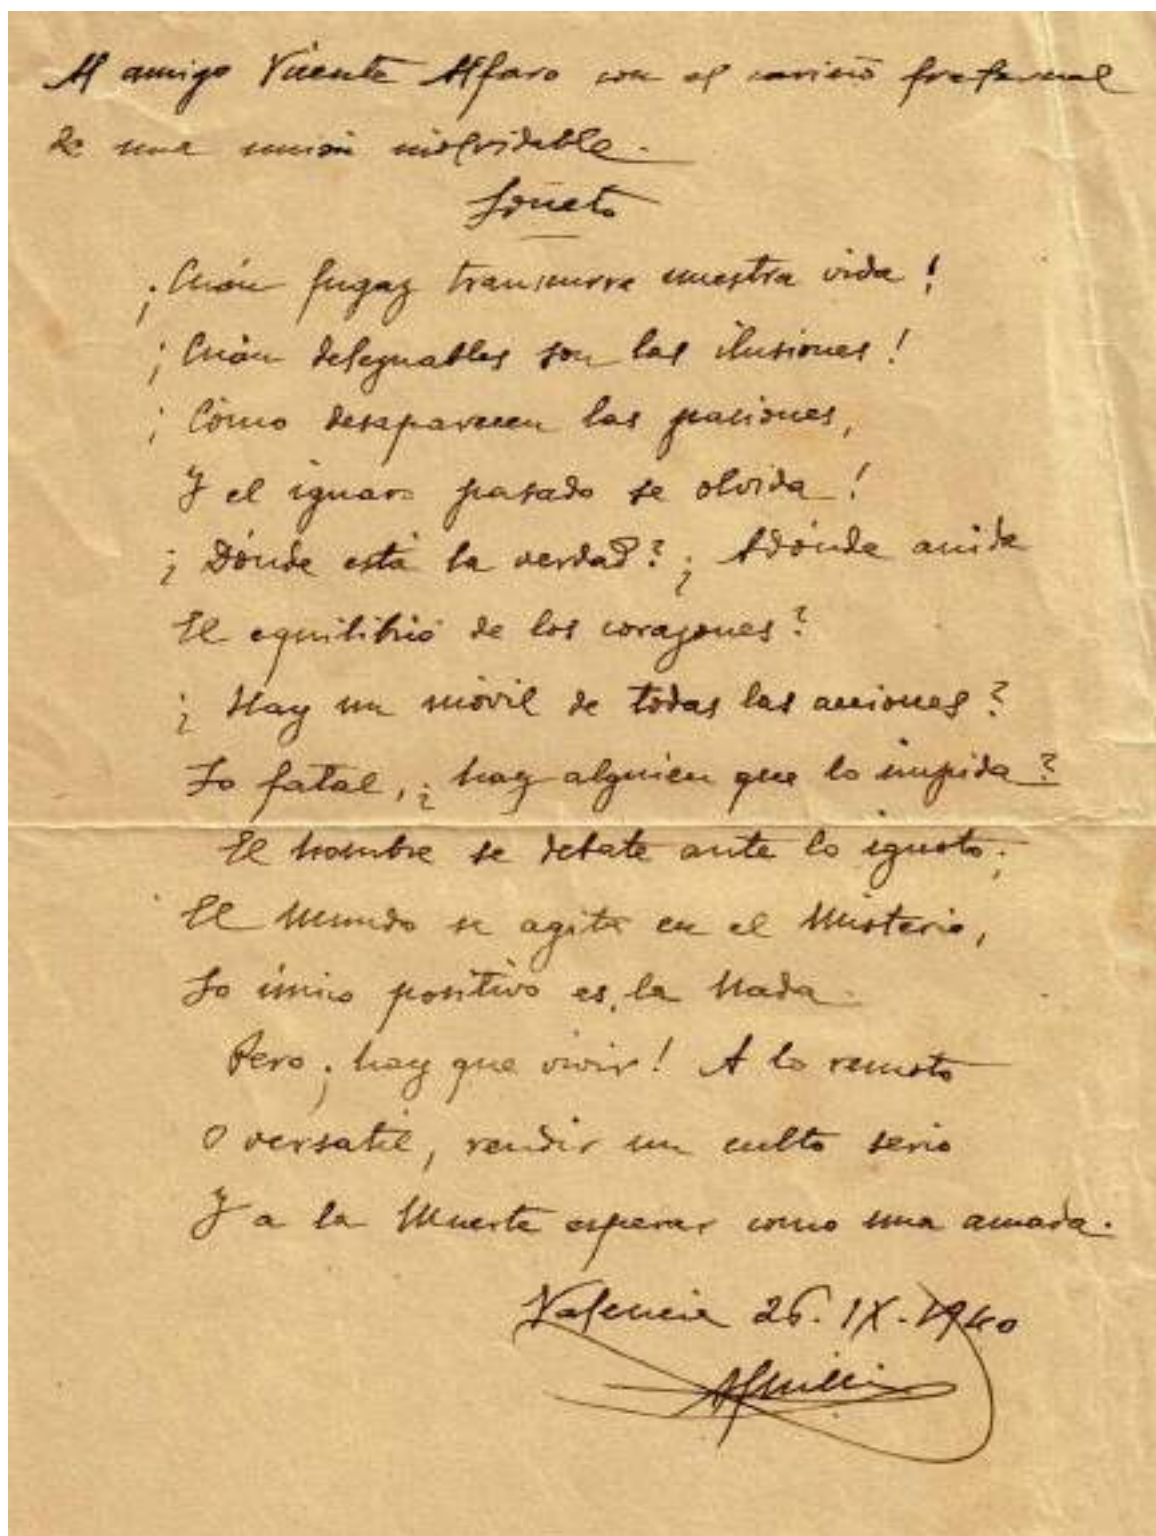 Al amigo Vicente Alfaro con el cariño fraternal
de una unión inolvidable.
Soneto
¡Cuán fugaz transcurre nuestra vida!
¡Cuán deleznables son las ilusiones!
¡Cómo desaparecen las pasiones,
Y el ignaro pasado se olvida!
¿Dónde está la verdad? ¿Adónde anida
El equilibrio de los corazones?
¿Hay un móvil de todas las acciones?
Lo fatal, ¿hay alguien que lo impida?
El hombre se debate ante lo ignoto;
El Mundo se agita en el Misterio,
Lo único positivo es la Nada.
Pero ¡hay que vivir! A lo remoto
O versatil, rendir un culto serio
Y a la Muerte esperar como una amada.
Valencia 26. IX. 1940